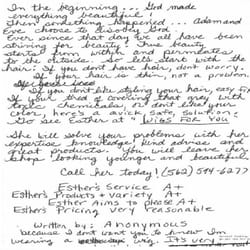 In the beginning... God made
everything beautiful.
Then something happened... Adam and
Eve choose to disobey God
Ever since that day we all have been
striving for beauty. True beauty
starts from within and permeates
to the outside. So lets start with the
hair: If you don't have hair, don't worry.
If your hair is thin, not a problem.
If you don't like styling your hair, easy fix
If your tired of covering that gray with
toxic chemicals, or don't like your
color, here's a quick, Safe, Solution.
Go see Esther at "Wigs For You"
She will solve your problems with her
expertise, knowledge, kind advise and
great products. You will leave her
shop looking younger and beautiful.
Call her today! (562) 594-6277
Esther's Service A+
Esther's Products + variety A+
Esther Aims to please A+
Esther Pricing very reasonable
Written by: Anonymous
because I don't want you to know Im
wearing a wig. Its very